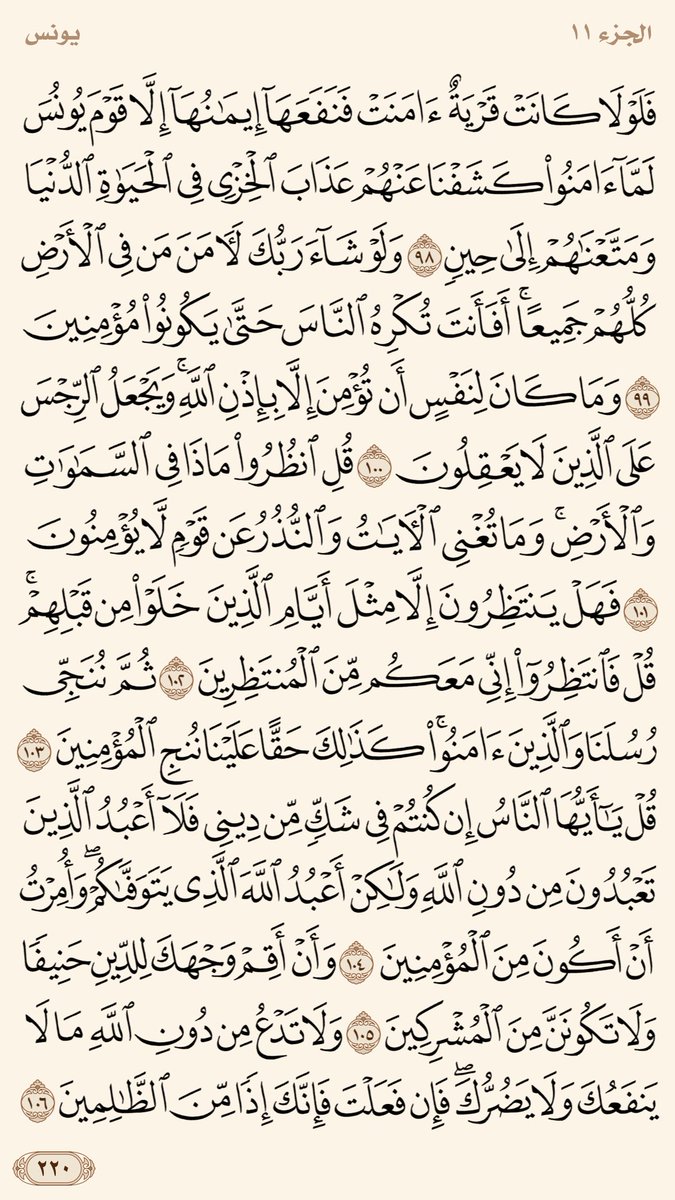 الجزء ١١
يونس
فَلَوۡلَا كَانَتۡ قَرۡيَةٌ ءَامَنَتۡ فَنَفَعَهَآ إِيمَٰنُهَآ إِلَّا قَوۡمَ يُونُسَ
لَمَّآ ءَامَنُواْ كَشَفۡنَا عَنۡهُمۡ عَذَابَ ٱلۡخِزۡيِ فِي ٱلۡحَيَوٰةِ ٱلدُّنۡيَا
وَمَتَّعۡنَٰهُمۡ إِلَىٰ حِينٖ ٩٨ وَلَوۡ شَآءَ رَبُّكَ لَأٓمَنَ مَن فِي ٱلۡأَرۡضِ
كُلُّهُمۡ جَمِيعًاۚ أَفَأَنتَ تُكۡرِهُ ٱلنَّاسَ حَتَّىٰ يَكُونُواْ مُؤۡمِنِينَ
٩٩ وَمَا كَانَ لِنَفۡسٍ أَن تُؤۡمِنَ إِلَّا بِإِذۡنِ ٱللَّهِۚ وَيَجۡعَلُ ٱلرِّجۡسَ
عَلَى ٱلَّذِينَ لَا يَعۡقِلُونَ ١٠٠ قُلِ ٱنظُرُواْ مَاذَا فِي ٱلسَّمَٰوَٰتِ
وَٱلۡأَرۡضِۚ وَمَا تُغۡنِي ٱلۡأٓيَٰتُ وَٱلنُّذُرُ عَن قَوۡمٖ لَّا يُؤۡمِنُونَ
١٠١ فَهَلۡ يَنتَظِرُونَ إِلَّا مِثۡلَ أَيَّامِ ٱلَّذِينَ خَلَوۡاْ مِن قَبۡلِهِمۡۚ
قُلۡ فَٱنتَظِرُوٓاْ إِنِّي مَعَكُم مِّنَ ٱلۡمُنتَظِرِينَ ١٠٢ ثُمَّ نُنَجِّي
رُسُلَنَا وَٱلَّذِينَ ءَامَنُواْۚ كَذَٰلِكَ حَقًّا عَلَيۡنَا نُنجِ ٱلۡمُؤۡمِنِينَ ١٠٣
قُلۡ يَٰٓأَيُّهَا ٱلنَّاسُ إِن كُنتُمۡ فِي شَكّٖ مِّن دِينِي فَلَآ أَعۡبُدُ ٱلَّذِينَ
تَعۡبُدُونَ مِن دُونِ ٱللَّهِ وَلَٰكِنۡ أَعۡبُدُ ٱللَّهَ ٱلَّذِي يَتَوَفَّىٰكُمۡۖ وَأُمِرۡتُ
أَنۡ أَكُونَ مِنَ ٱلۡمُؤۡمِنِينَ ١٠٤ وَأَنۡ أَقِمۡ وَجۡهَكَ لِلدِّينِ حَنِيفٗا
وَلَا تَكُونَنَّ مِنَ ٱلۡمُشۡرِكِينَ ١٠٥ وَلَا تَدۡعُ مِن دُونِ ٱللَّهِ مَا لَا
يَنفَعُكَ وَلَا يَضُرُّكَۖ فَإِن فَعَلۡتَ فَإِنَّكَ إِذٗا مِّنَ ٱلظَّٰلِمِينَ ١٠٦
٢٢٠